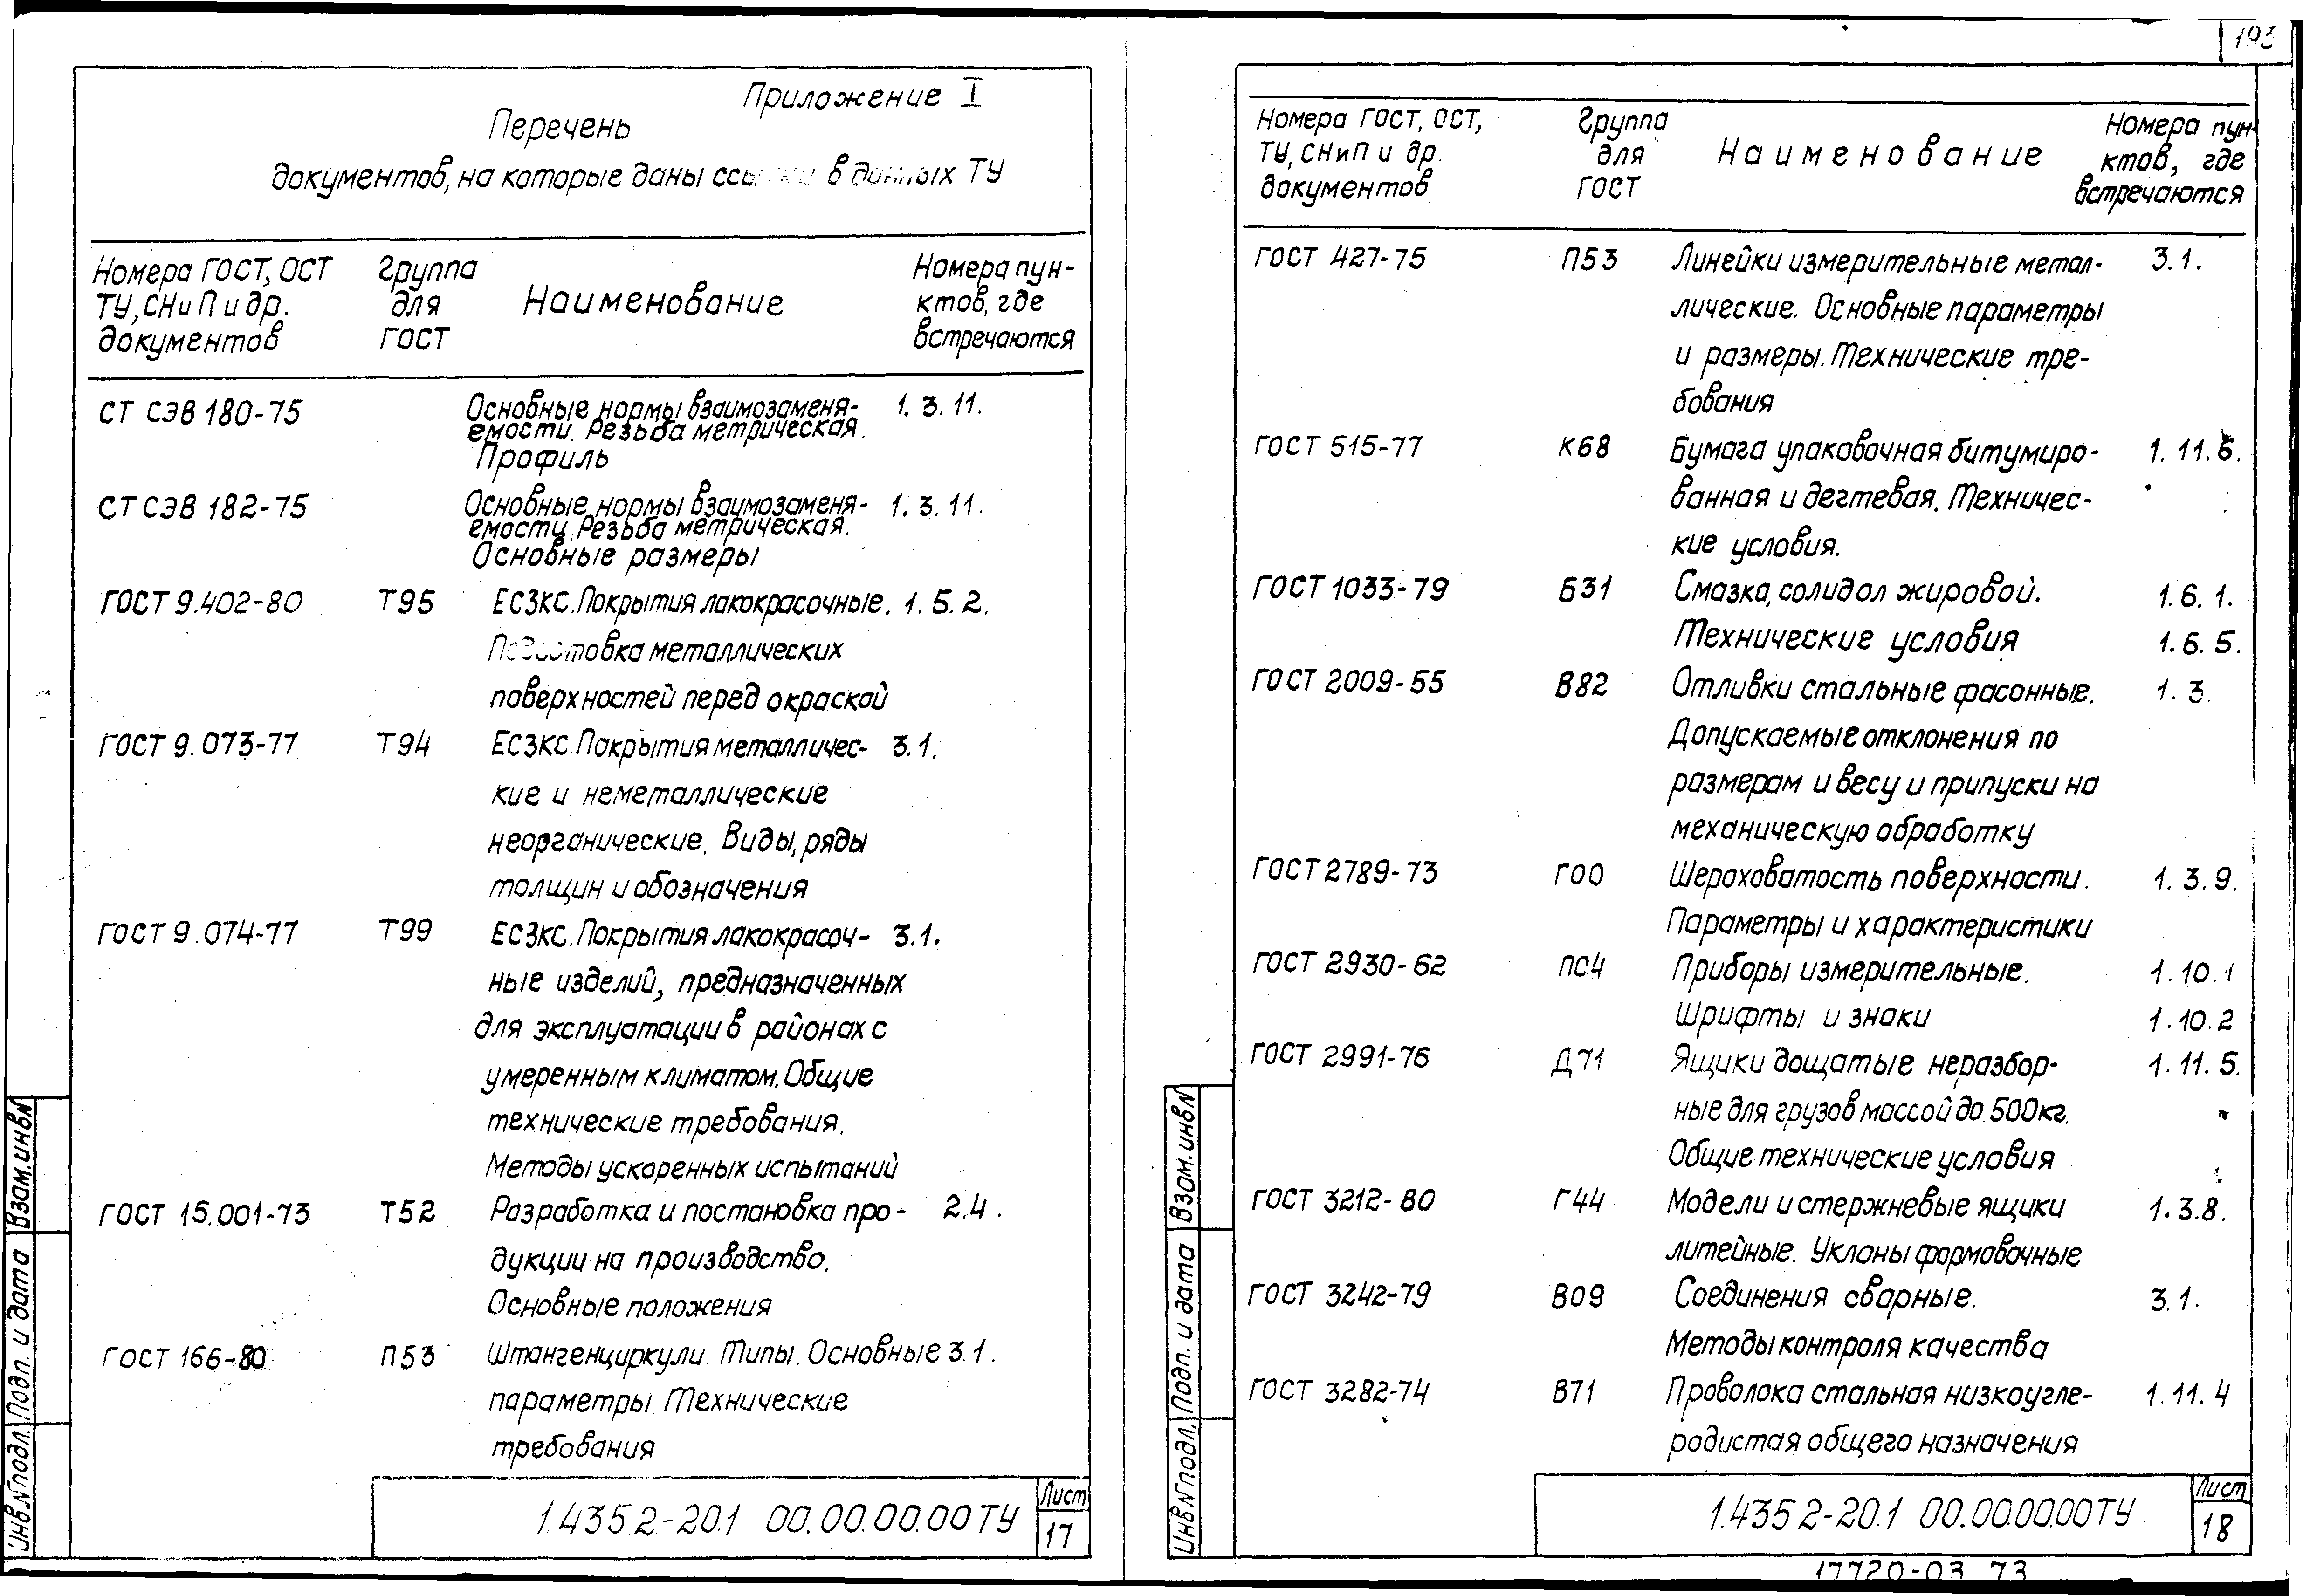 Приложение I
Перечень
документов, на которые даны ссылки в данных ТУ
Номера ГОСТ, ОСТ Группа Наименование Номера пун-
ТУ, СНиП и др. для ктов, где
документов ГОСТ встречаются
СТ СЭВ 180-75 Основные нормы взаимозаменя- 1.3.11.
емости. Резьба метрическая.
Профиль
СТ СЭВ 182-75 Основные нормы взаимозаменя- 1.3.11.
емости. Резьба метрическая.
Основные размеры
ГОСТ 9.402-80 Т95 ЕСЗКС. Покрытия лакокрасочные. 1.5.2.
Подготовка металлических
поверхностей перед окраской
ГОСТ 9.073-77 Т94 ЕСЗКС. Покрытия металличес- 3.1.
кие и неметаллические
неорганические. Виды, ряды
толщин и обозначения
ГОСТ 9.074-77 Т99 ЕСЗКС. Покрытия лакокрасоч- 3.1.
ные изделий, предназначенных
для эксплуатации в районах с
умеренным климатом. Общие
технические требования.
Методы ускоренных испытаний
ГОСТ 15.001-73 Т52 Разработка и постановка про- 2.4.
дукции на производство.
Основные положения
ГОСТ 166-80 П53 Штангенциркули. Типы. Основные 3.1.
параметры. Технические
требования
1.435.2-20.1 00.00.00.00ТУ
Лист
17
Взам.инв№
Подп. и дата
Инв№подл.
193
Номера ГОСТ, ОСТ, Группа Наименование Номера пун-
ТУ, СНиП и др. для ктов, где
документов ГОСТ встречаются
ГОСТ 427-75 П53 Линейки измерительные метал- 3.1.
лические. Основные параметры
и размеры. Технические тре-
бования
ГОСТ 515-77 К68 Бумага упаковочная битумиро- 1.11.6.
ванная и дегтевая. Техничес-
кие условия.
ГОСТ 1033-79 Б31 Смазка, солидол жировой. 1.6.1.
Технические условия 1.6.5.
ГОСТ 2009-55 В82 Отливки стальные фасонные. 1.3.
Допускаемые отклонения по
размерам и весу и припуски на
механическую обработку
ГОСТ 2789-73 Г00 Шероховатость поверхности. 1.3.9.
Параметры и характеристики
ГОСТ 2930-62 ПС4 Приборы измерительные. 1.10.1
Шрифты и знаки 1.10.2
ГОСТ 2991-76 Д71 Ящики дощатые неразбор- 1.11.5.
ные для грузов массой до 500кг.
Общие технические условия
ГОСТ 3212-80 Г44 Модели и стержневые ящики 1.3.8.
литейные. Уклоны формовочные
ГОСТ 3242-79 В09 Соединения сварные. 3.1.
Методы контроля качества
ГОСТ 3282-74 В71 Проволока стальная низкоугле- 1.11.4
родистая общего назначения
1.435.2-20.1 00.00.00.00ТУ
Лист
18
Взам.инв№
Подп. и дата
Инв№подл.
17720-03 73